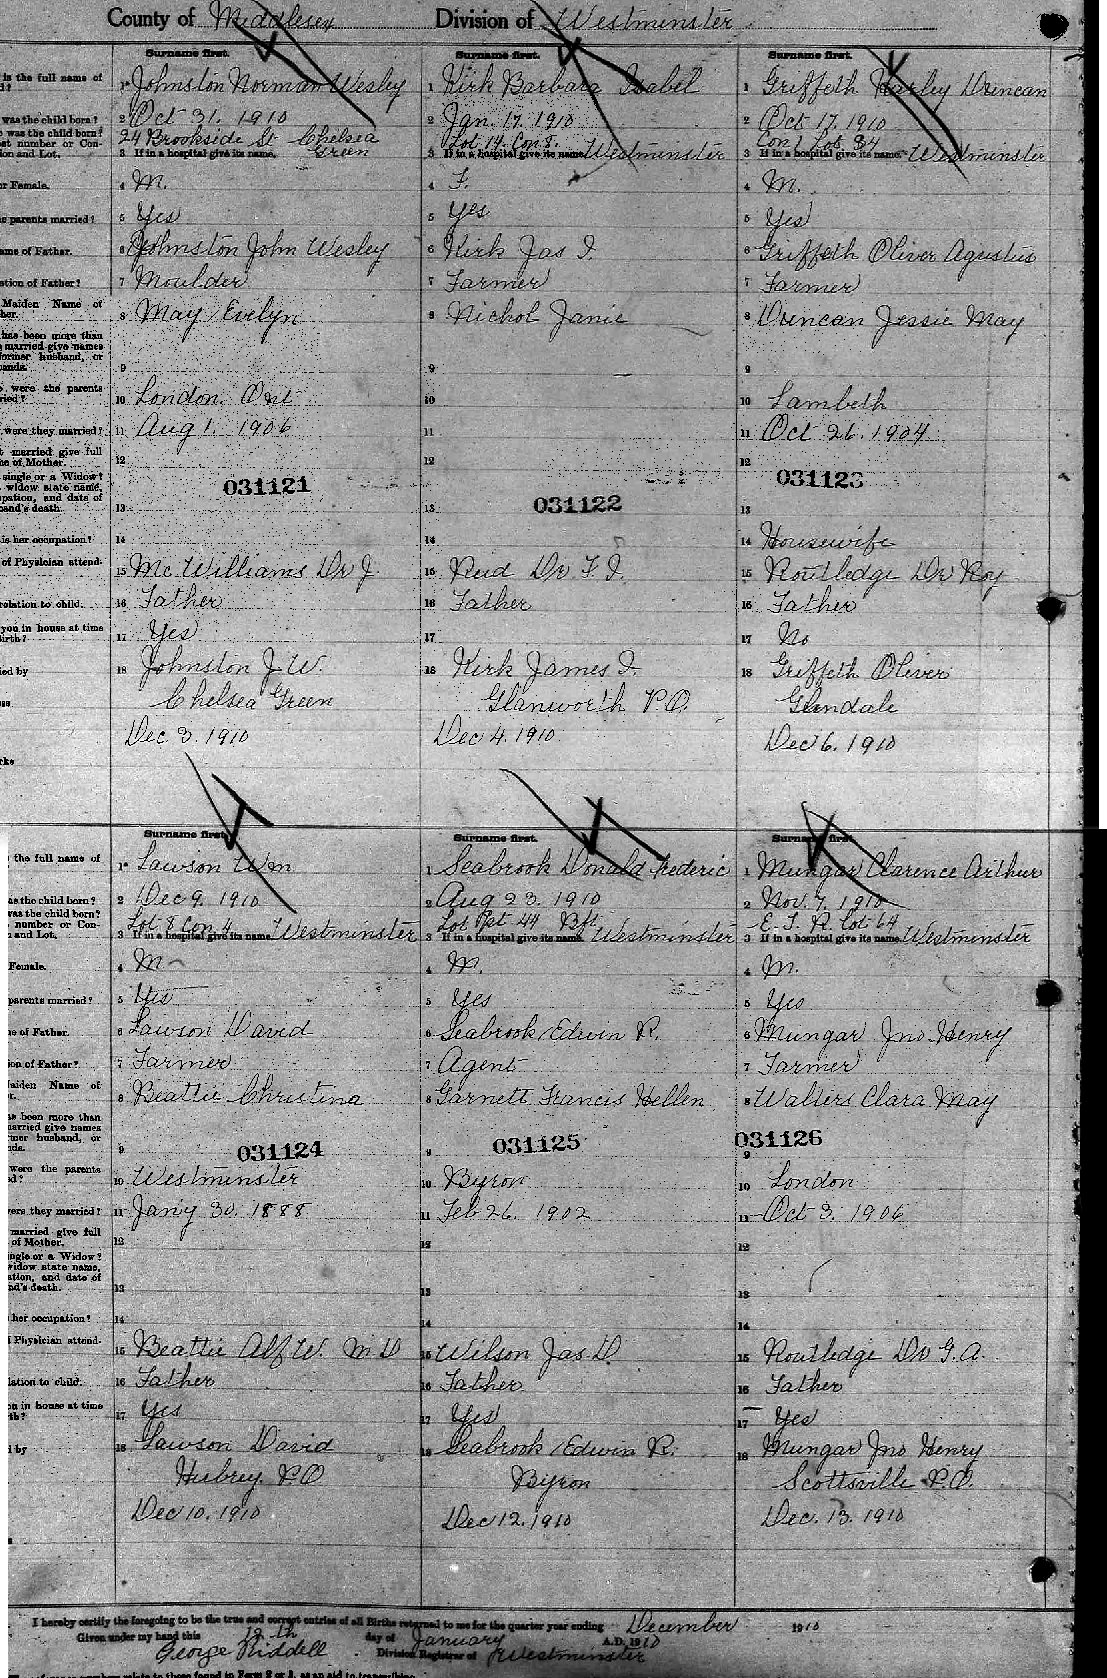 County of Middlesex Division of Westminster
Surname first. Surname first. Surname first.
is the full name of 1 Johnston Norman Wesley 1 Kirk Barbara Isabel 1 Griffeth Harley Duncan
was the child born? 2 Oct 31. 1910 2 Jan. 17. 1910 2 Oct 17. 1910
was the child born? 24 Brookside St Chelsea Lot 14. Con 8. Con 1 Lot 34
number or Con- Green
ion and Lot. 3 If in a hospital give its name. 3 If in a hospital give its name. Westminster 3 If in a hospital give its name. Westminster
or Female. 4 M. 4 F. 4 M.
parents married? 5 Yes 5 Yes 5 Yes
ame of Father. 6 Johnston John Wesley 6 Kirk Jas I. 6 Griffeth Oliver Agustus
ation of Father? 7 Moulder 7 Farmer 7 Farmer
Maiden Name of
her. 8 May Evelyn 8 Nichol Janie 8 Duncan Jessie May
has been more than
married give names
former husband, or
bands. 9 9 9
were the parents
ried? 10 London. Ont 10 10 Lambeth
were they married? 11 Aug 1. 1906 11 11 Oct 26. 1904
married give full
me of Mother. 12 12 12
single or a Widow?
widow state name,
upation, and date of
band's death. 13 031121 13 031122 13 031123
is her occupation? 14 14 14 Housewife
of Physician attend- 15 McWilliams Dr J 15 Reid Dr F. I. 15 Routledge Dr Roy
relation to child. 16 Father 16 Father 16 Father
you in house at time
Birth? 17 Yes 17 17 No
ied by 18 Johnston J. W. 18 Kirk James I. 18 Griffeth Oliver
Chelsea Green Glanworth P.O. Glendale
Dec 3. 1910 Dec 4. 1910 Dec 6. 1910
rks
Surname first. Surname first. Surname first.
the full name of 1 Lawson Wm 1 Seabrook Donald Frederic 1 Mungar Clarence Arthur
as the child born? 2 Dec 9. 1910 2 Aug 23. 1910 2 Nov. 7. 1910
was the child born? Lot 8 Con 4 Lot Pt 44 Bft E. T. R. Lot 64
number or Con-
and Lot. 3 If in a hospital give its name Westminster 3 If in a hospital give its name. Westminster 3 If in a hospital give its name. Westminster
Female. 4 M 4 M. 4 M.
parents married? 5 Yes 5 Yes 5 Yes
e of Father. 6 Lawson David 6 Seabrook Edwin R. 6 Mungar Jno Henry
ion of Father? 7 Farmer 7 Agent 7 Farmer
aiden Name of
r. 8 Beattie Christina 8 Garnett Francis Hellen 8 Walters Clara May
as been more than
married give names
rmer husband, or
nds. 9 031124 9 031125 9 031126
were the parents
d? 10 Westminster 10 Byron 10 London
ere they married? 11 Jany 30. 1888 11 Feb 26. 1902 11 Oct 3. 1906
married give full
of Mother. 12 12 12
ngle or a Widow?
widow state name,
ation, and date of
nd's death. 13 13 13
her occupation? 14 14 14
Physician attend- 15 Beattie Alf W. M D 15 Wilson Jas D. 15 Routledge Dr G. A.
lation to child. 16 Father 16 Father 16 Father
ou in house at time
th? 17 Yes 17 Yes 17 Yes
by 18 Lawson David 18 Seabrook Edwin R. 18 Mungar Jno Henry
Hubrey PO Byron Scottsville P.O.
Dec 10. 1910 Dec 12. 1910 Dec. 13. 1910
I hereby certify the foregoing to be the true and correct entries of all Births returned to me for the quarter year ending December 1910
Given under my hand this 12th day of January A.D. 1910
George Riddell Division Registrar of Westminster